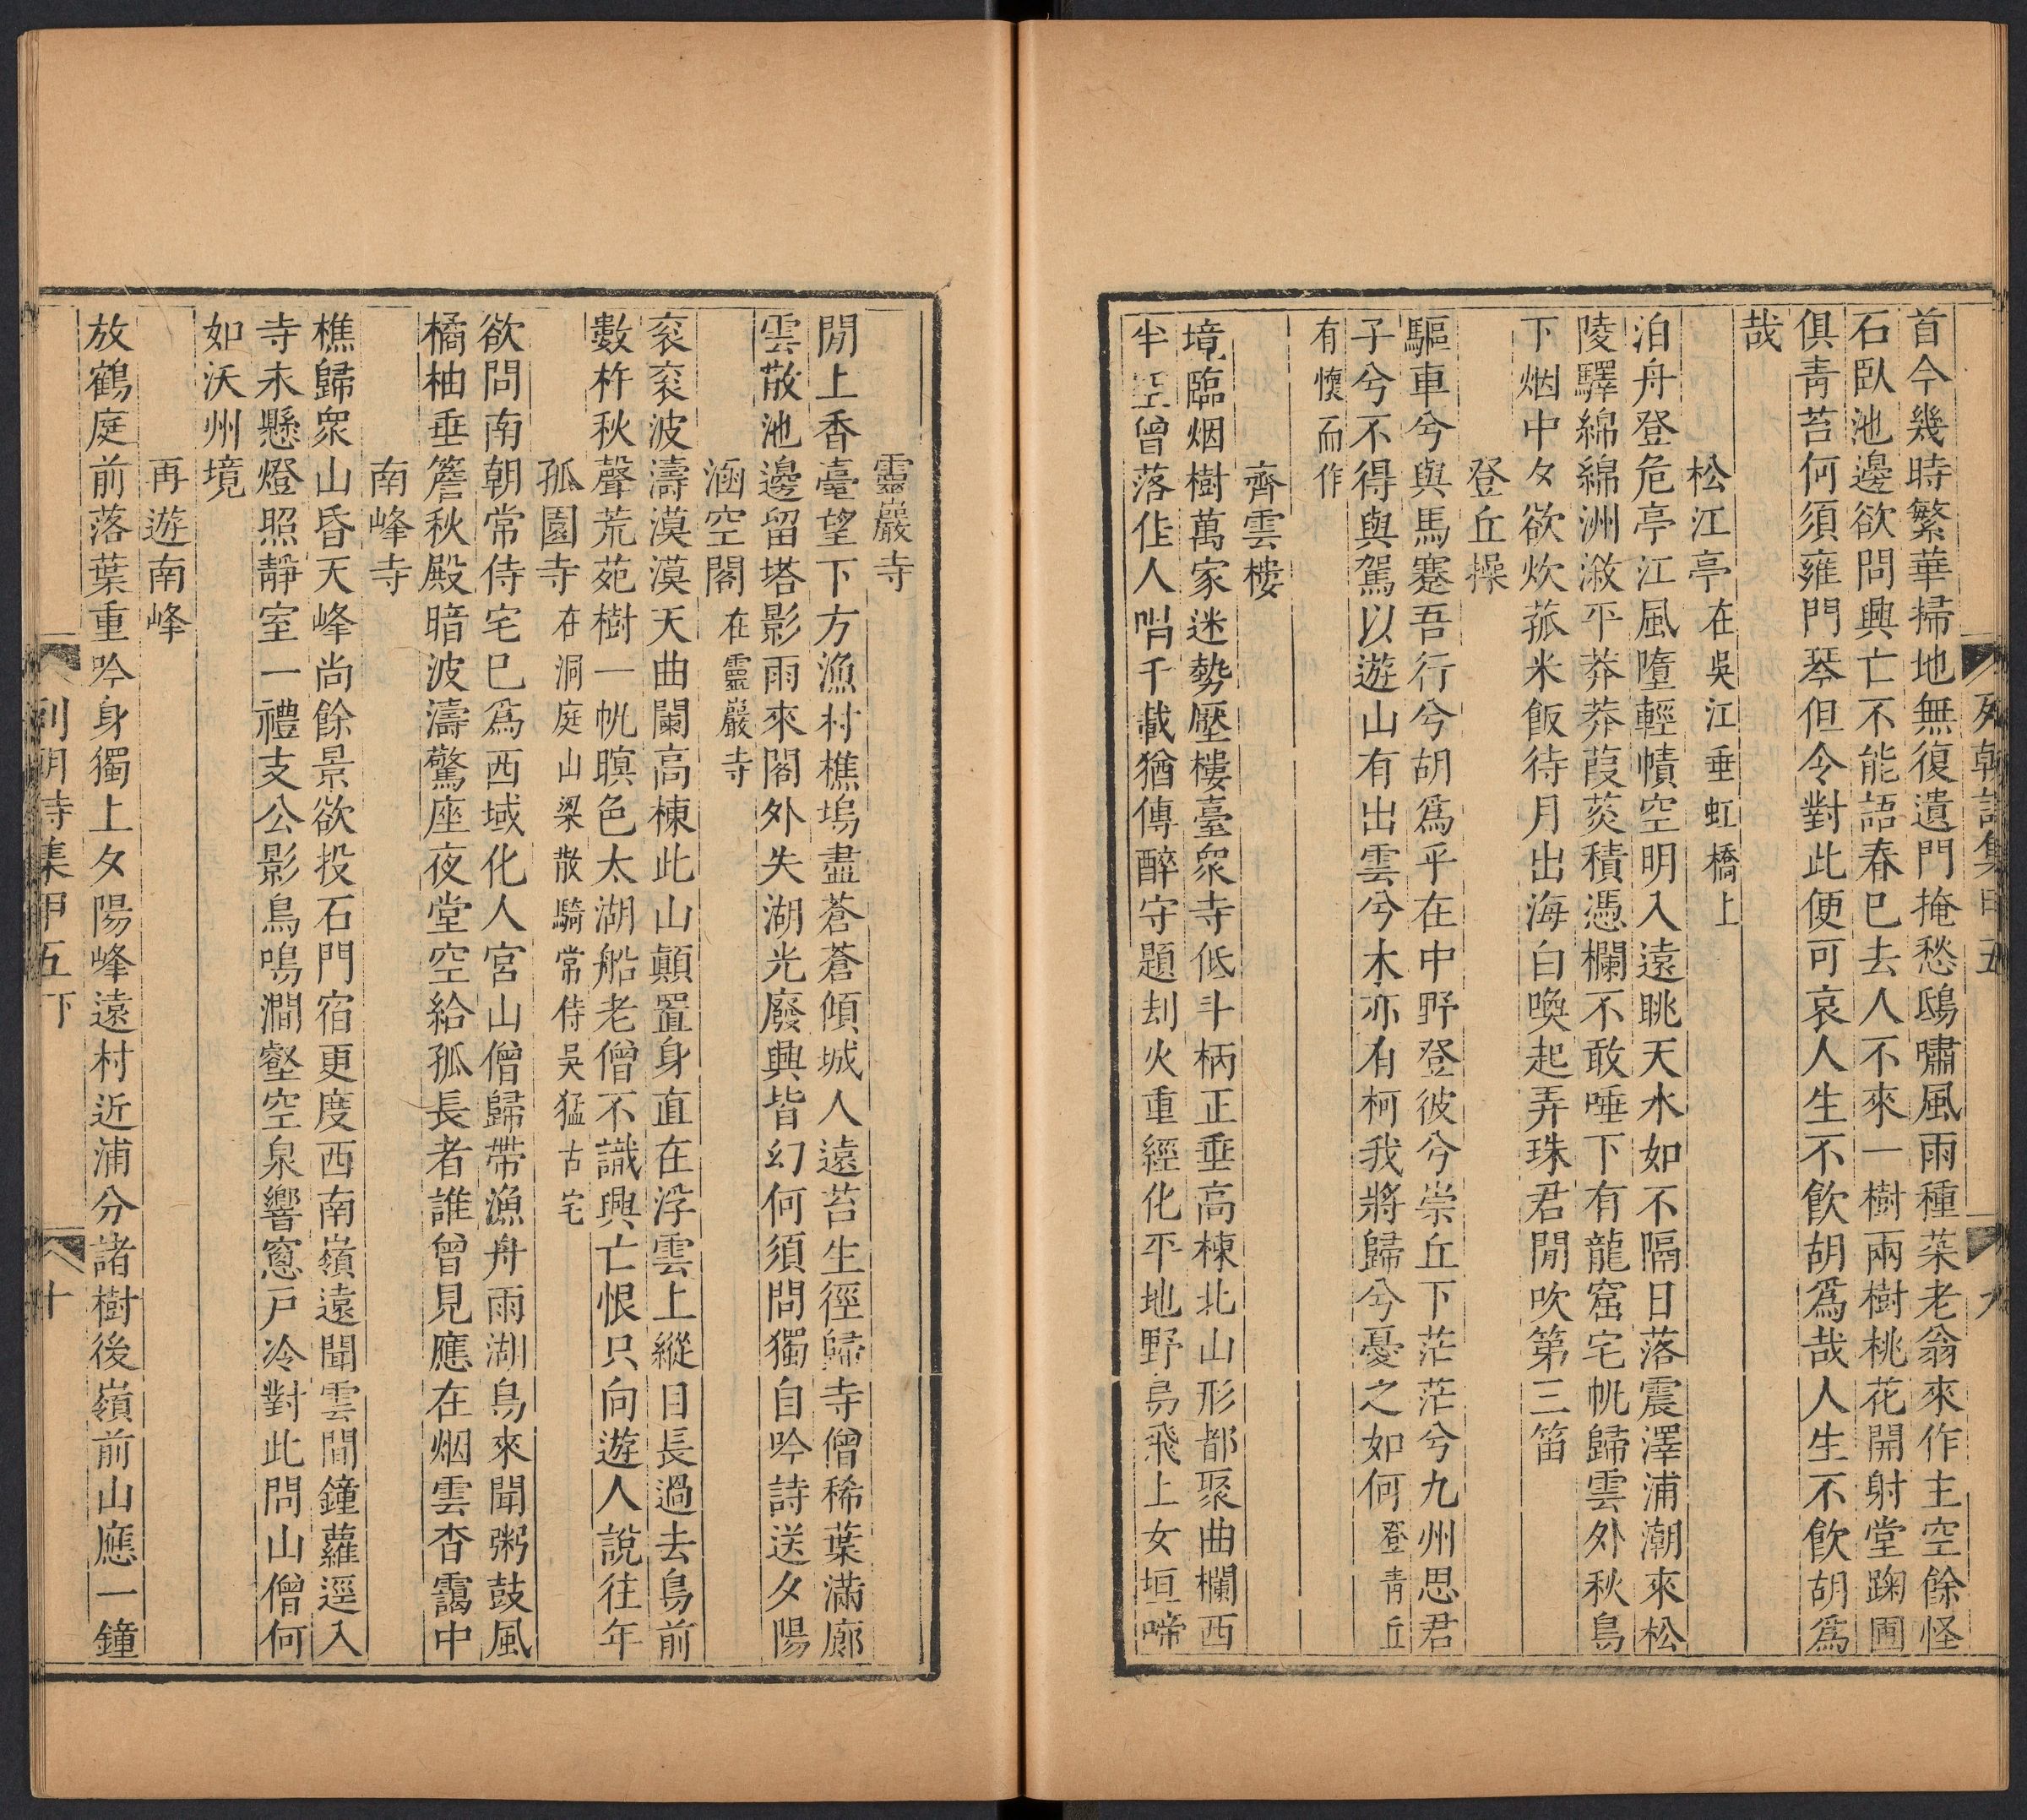 首今幾時繁華掃地無復遺門掩愁鴟嘯風雨種菜老翁來作主空餘怪
石臥池邊欲問興亡不能語春已去人不來一樹兩樹桃花開射堂踘圃
俱青苔何須雍門琴但令對此便可哀人生不飲胡爲哉人生不飲胡爲
哉
松江亭在吳江垂虹橋上
泊舟登危亭江風墮輕幘空明入遠眺天水如不隔日落震澤浦潮來松
陵驛綿綿洲溆平莽莽葭菼積憑欄不敢唾下有龍窟宅帆歸雲外秋鳥
下烟中夕欲炊菰米飯待月出海白喚起弄珠君閒吹第三笛
登丘操
驅車兮與馬蹇吾行兮胡爲乎在中野登彼兮崇丘下茫茫兮九州思君
子兮不得與駕以遊山有出雲兮木亦有柯我將歸兮憂之如何登青丘
有懷而作
齊雲樓
境臨烟樹萬家迷勢壓樓臺衆寺低斗柄正垂高棟北山形都聚曲欄西
半空曾落佳人唱千載猶傳醉守題刦火重經化平地野烏飛上女垣啼
列朝詩集甲五
九
靈巖寺
閒上香臺望下方漁村樵塢盡蒼蒼傾城人遠苔生徑歸寺僧稀葉滿廊
雲散池邊留塔影雨來閣外失湖光廢興皆幻何須問獨自吟詩送夕陽
涵空閣在靈巖寺
衮衮波濤漠漠天曲闌高棟此山顛置身直在浮雲上縱目長過去鳥前
數杵秋聲荒苑樹一帆暝色太湖船老僧不識興亡恨只向遊人說往年
孤園寺在洞庭山梁散騎常侍吳猛古宅
欲問南朝常侍宅已爲西域化人宮山僧歸帶漁舟雨湖鳥來聞粥鼓風
橘柚垂簷秋殿暗波濤驚座夜堂空給孤長者誰曾見應在烟雲杳靄中
南峰寺
樵歸衆山昏天峰尚餘景欲投石門宿更度西南嶺遠聞雲間鐘蘿逕入
寺未懸燈照靜室一禮支公影鳥鳴澗壑空泉響窻戶冷對此問山僧何
如沃州境
再遊南峰
放鶴庭前落葉重吟身獨上夕陽峰遠村近浦分諸樹後嶺前山應一鐘
列朝詩集甲五下
十